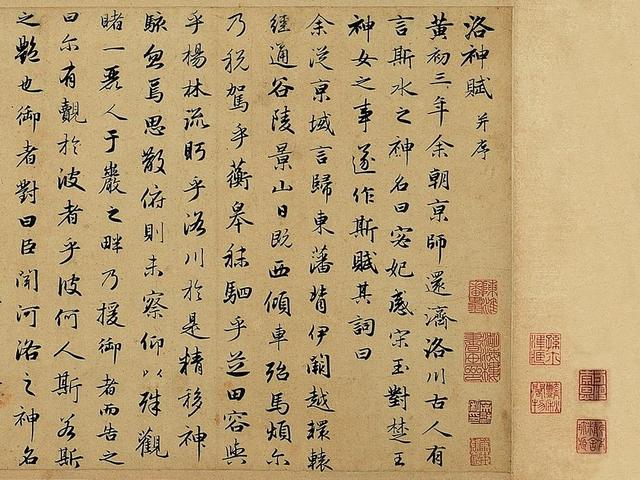 洛神賦 并序
黃初三年余朝京師還濟洛川古人有
言斯水之神名曰宓妃感宋玉對楚王
神女之事遂作斯賦其詞曰
余從京域言歸東藩背伊闕越轘轅
經通谷陵景山日既西傾車殆馬煩尒
乃稅駕乎蘅皋秣駟乎芝田容與
乎楊林流眄乎洛川於是精移神
駭忽焉思散俯則未察仰以殊觀
睹一麗人于巖之畔乃援御者而告之
曰尒有覿於彼者乎彼何人斯若斯
之豔也御者對曰臣聞河洛之神名